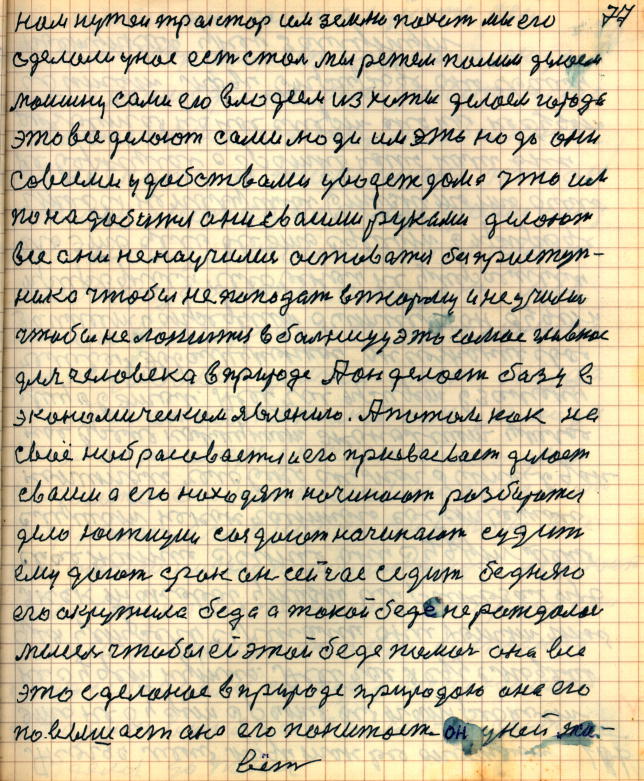 77
нам нужен трактор им землю пахат мы его
сделали у нас ест стал мы режем полим делаем
машину сами его владеем из хаты делаем города
это все делают сами люди им это надо они
совсеми удобствами уводет дома что им
понадобится они сваими руками делают
все они не научился оставатся бес приступ-
ника чтобы не попадат в тюрму и не учился
чтобы не ложится в балницу это самое главное
для человека в природе А он делает базу в
экономическом явлению. А потом как на
своё набрасовается и его присваевает делает
сваим а его находят начинают разбиратся
дело юстиции саздают начинают судит
ему дают срок он сейчас седит бедняго
его окружила беда а такой беде не раждалас
мысля чтобы ей этой беде помоч она все
это сделаное в природе природою она его
повышает ана его понимает он у ней жи-
вёт